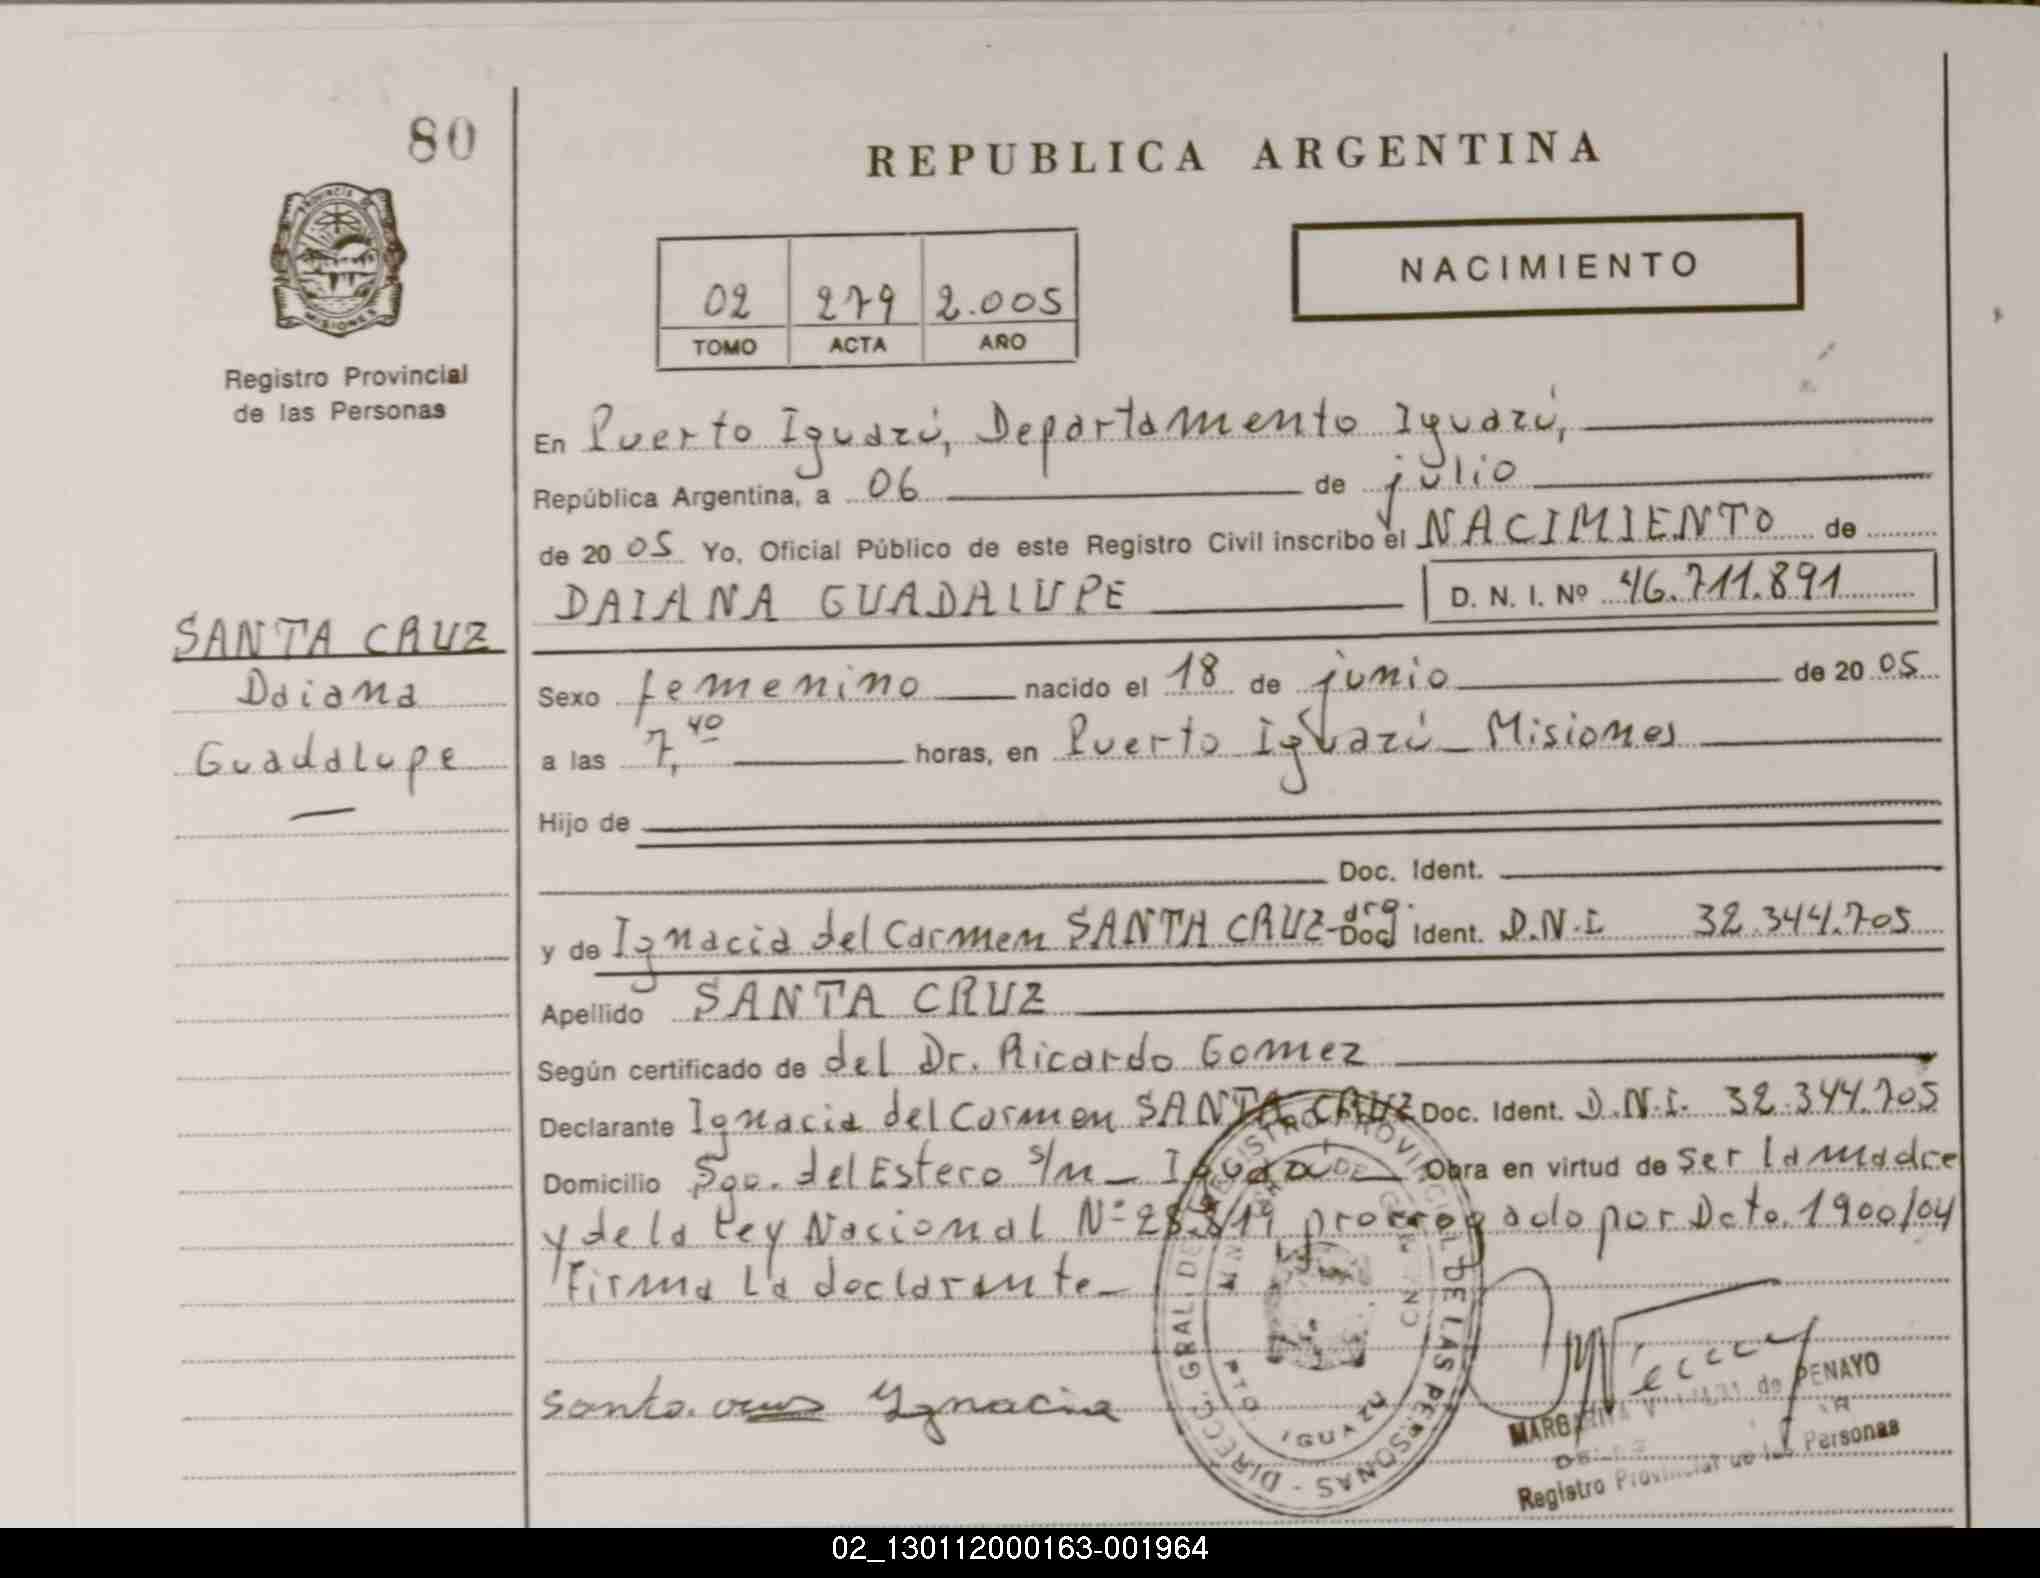 80
REPUBLICA ARGENTINA
PROVINCIA DE
MISIONES
Registro Provincial
de las Personas
02 279 2.005
TOMO ACTA AÑO
NACIMIENTO
En Puerto Iguazú, Departamento Iguazú,
República Argentina, a 06 de julio
de 2005 Yo, Oficial Público de este Registro Civil inscribo el NACIMIENTO de
DAIANA GUADALUPE D. N. I. Nº 46.711.891
SANTA CRUZ
Daiana
Guadalupe
Sexo femenino nacido el 18 de junio de 2005
a las 7,40 horas, en Puerto Iguazú_ Misiones
Hijo de
Doc. Ident.
y de Ignacia del Carmen SANTA CRUZ- arg. Doc. Ident. D.N.I. 32.344.705
Apellido SANTA CRUZ
Según certificado de del Dr. Ricardo Gomez
Declarante Ignacia del Carmen SANTA CRUZ Doc. Ident. D.N.I. 32.344.705
Domicilio Sgo. del Estero s/n_ Obra en virtud de ser la madre
y de la Ley Nacional Nº prorrogado por Dcto. 1900/04
Firma La declarante_
Santa cruz Ygnacia
DIRECC. GRAL. DE REGISTRO PROVINCIAL DE LAS PERSONAS
PTO IGUAZU
MARGARITA de PENAYO
Registro Provincial de las Personas
02_130112000163-001964